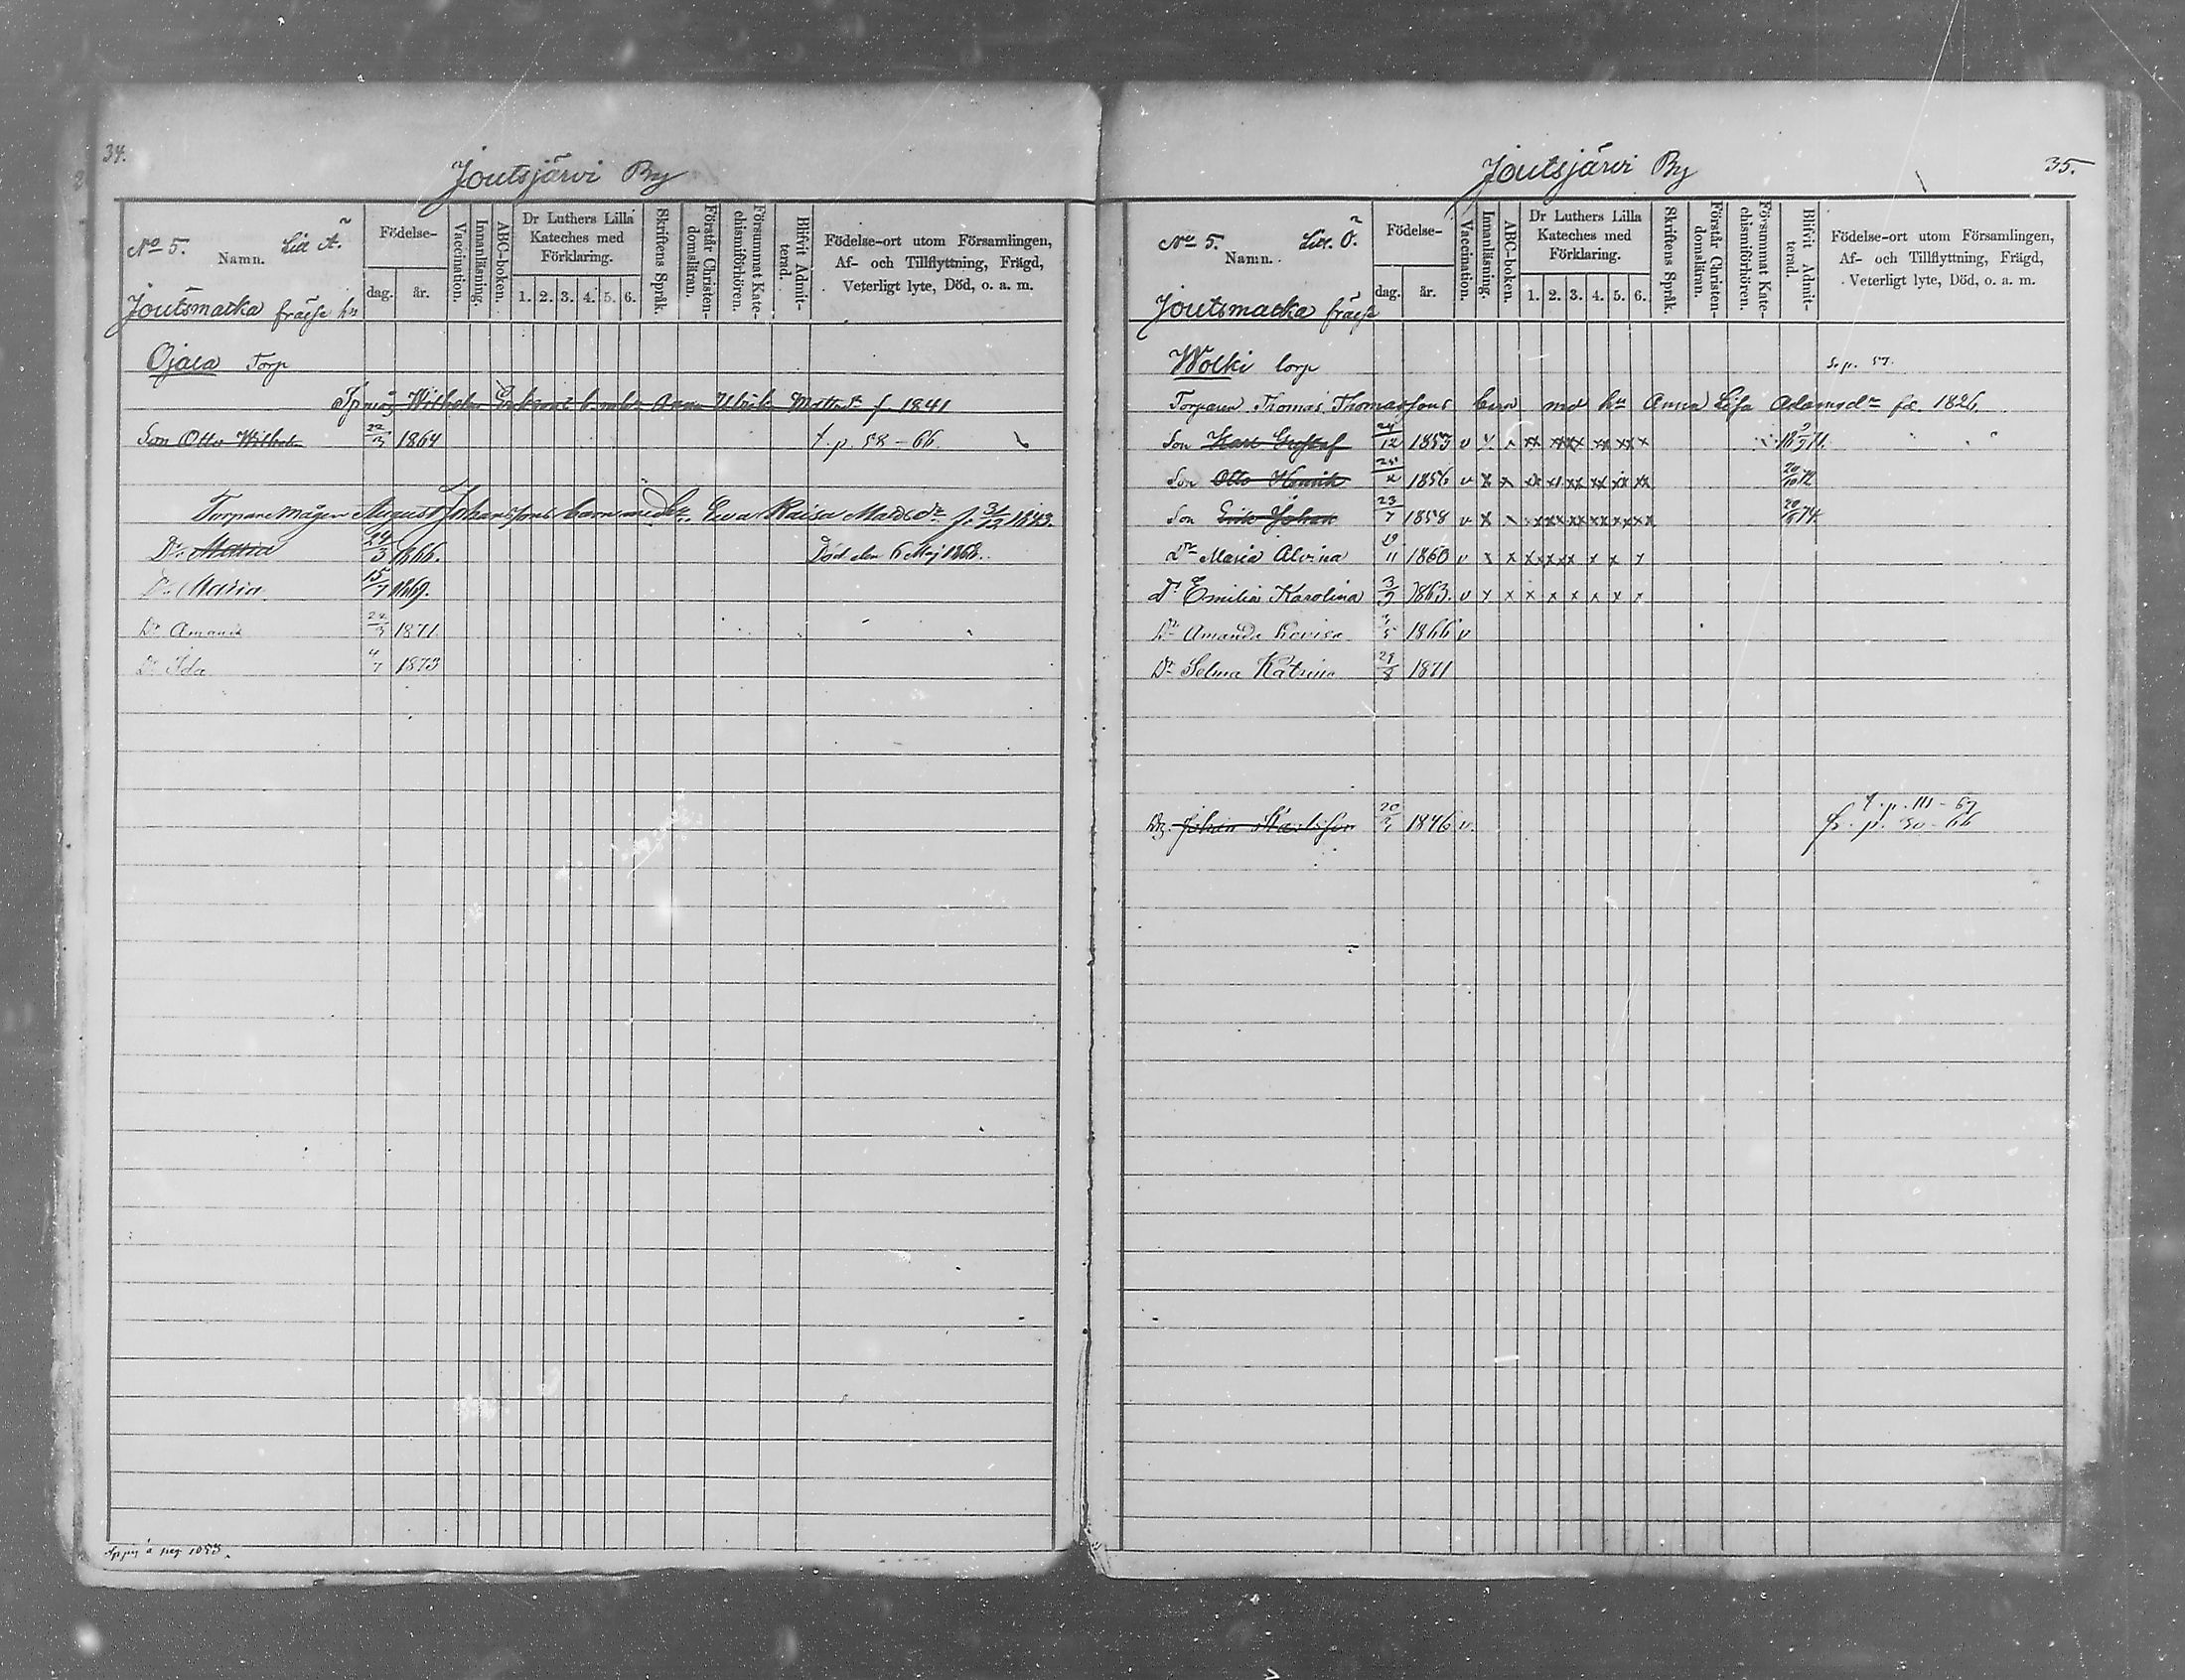 34.
Joutsjärvi By
No 5. Litt Ã.
Namn.
Födelse-
dag. år.
Vaccination.
Innanläsning.
ABC-boken.
Dr Luthers Lilla
Kateches med
Förklaring.
1. 2. 3. 4. 5. 6.
Skriftens Språk.
Förstår Christen-
domsläran.
Försummat Kate-
chismiförhören.
Blifvit Admit-
terad.
Födelse-ort utom Församlingen,
Af- och Tillflyttning, Frägd,
Veterligt lyte, Död, o. a. m.
Joutsmatka frälse hn
Ojala Torp
Wilhelm f. 1841
Son Otto Wilhelm 22/3 1864 t. p. 58-66.
Torpare mågen August Johanssons barn med h. Eva Kaisa Matsdr f. 31/12 1843.
Dr. Maria 24/3 1866. Död den 6 Maj 1868.
Dr. Maria 15/7 1869.
Dr Amanda 24/3 1871
Dr Ida 4/7 1873
35.
Joutsjärvi By
No 5. Litt. Õ.
Namn.
Födelse-
dag. år.
Vaccination.
Innanläsning.
ABC-boken.
Dr Luthers Lilla
Kateches med
Förklaring.
1. 2. 3. 4. 5. 6.
Skriftens Språk.
Förstår Christen-
domsläran.
Försummat Kate-
chismiförhören.
Blifvit Admit-
terad.
Födelse-ort utom Församlingen,
Af- och Tillflyttning, Frägd,
Veterligt lyte, Död, o. a. m.
Joutsmatka frälse
Wolki torp S. p. 57.
Torparen Thomas Thomassons barn med hu Anna Lisa Adamsdr fd. 1826.
Son Karl Gustaf 24/12 1853 v
Son Otto Henrik 1856 v x x
Son Erik Johan 23/7 1858 v x
Dr Maria Alvina 19/11 1860 v x x x x x x x x x
Dr Emilia Karolina 3/9 1863. v x x x x x x x x
Dr Amanda Lovisa 1866 v
Dr Selma Katrina 29/8 1871
t. p. 111-67
Drg. Johan Karlsson 1846 v. fr. p. 30-66